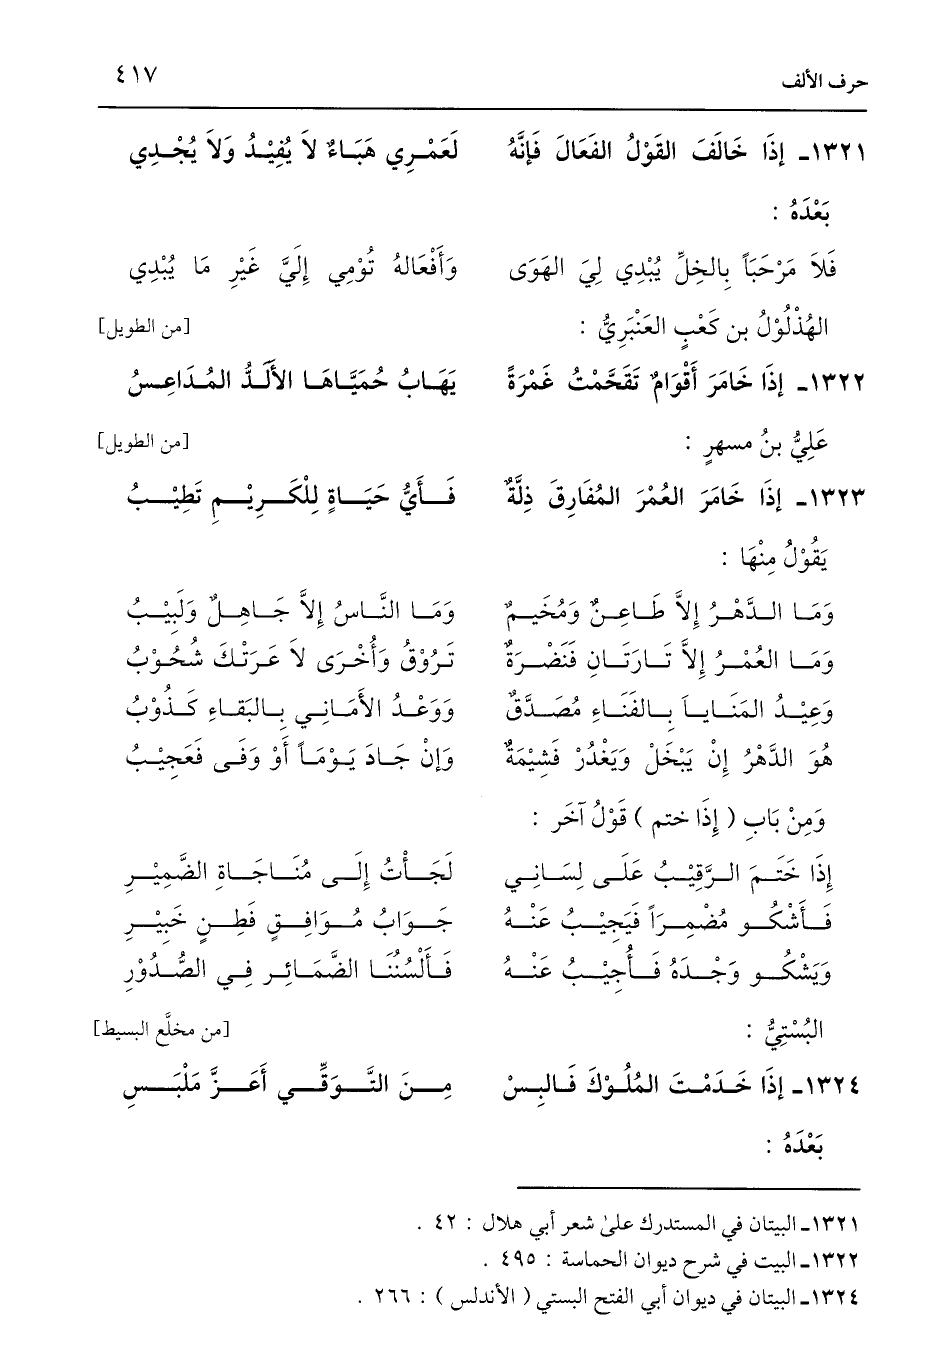 حرف الألف ٤١٧
١٣٢١ـ إِذَا خَالَفَ القَوْلُ الفَعَالَ فَإِنَّهُ لَعَمْرِي هَبَاءٌ لاَ يُفِيْدُ وَلاَ يُجْدِي
بَعْدَهُ :
فَلاَ مَرْحَبَاً بِالخِلِّ يُبْدِي لِيَ الهَوَى وَأَفْعَالهُ تُوْمِي إِلَيَّ غَيْرِ مَا يُبْدِي
الهُذْلُوْلُ بن كَعْبٍ العَنْبَرِيُّ : [من الطويل]
١٣٢٢ـ إِذَا خَامَرَ أَقْوَامٌ تَقَحَّمْتُ غَمْرَةً يَهَابُ حُمَيَّاهَا الأَلَدُّ المُدَاعِسُ
عَلِيُّ بنُ مسهرٍ : [من الطويل]
١٣٢٣ـ إِذَا خَامَرَ العُمْرَ المُفَارِقَ ذِلَّةٌ فَأَيُّ حَيَاةٍ لِلْكَرِيْمِ تَطِيْبُ
يَقُوْلُ مِنْهَا :
وَمَا الدَّهْرُ إِلاَّ طَاعِنٌ وَمُخَيمٌ وَمَا النَّاسُ إِلاَّ جَاهِلٌ وَلَبِيْبُ
وَمَا العُمْرُ إِلاَّ تَارَتَانِ فَنَضْرَةٌ تَرُوْقُ وَأُخْرَى لاَ عَرَتْكَ شُحُوْبُ
وَعِيْدُ المَنَايَا بِالفَنَاءِ مُصَدَّقٌ وَوَعْدُ الأَمَانِي بِالبَقَاءِ كَذُوْبُ
هُوَ الدَّهْرُ إِنْ يَبْخَلْ وَيَغْدُرْ فَشِيْمَةٌ وَإِنْ جَادَ يَوْمَاً أَوْ وَفَى فَعَجِيْبُ
وَمِنْ بَابِ ( إِذَا ختم ) قَوْلُ آخَر :
إِذَا خَتَمَ الرَّقِيْبُ عَلَى لِسَانِي لَجَأْتُ إِلَى مُنَاجَاةِ الضَّمِيْرِ
فَأَشْكُو مُضْمِرَاً فَيَجِيْبُ عَنْهُ جَوَابُ مُوَافِقٍ فَطِنٍ خَبِيْرِ
وَيَشْكُو وَجْدَهُ فَأُجِيْبُ عَنْهُ فَأَلْسُنُنَا الضَّمَائِرِ فِي الصُّدُوْرِ
البُسْتِيُّ : [من مخلَّع البسيط]
١٣٢٤ـ إِذَا خَدَمْتَ المُلُوْكَ فَالبِسْ مِنَ التَّوَقِّي أَعَزَّ مَلْبَسِ
بَعْدَهُ :
١٣٢١ـ البيتان في المستدرك على شعر أبي هلال : ٤٢ .
١٣٢٢ـ البيت في شرح ديوان الحماسة : ٤٩٥ .
١٣٢٤ـ البيتان في ديوان أبي الفتح البستي ( الأندلس ) : ٢٦٦ .